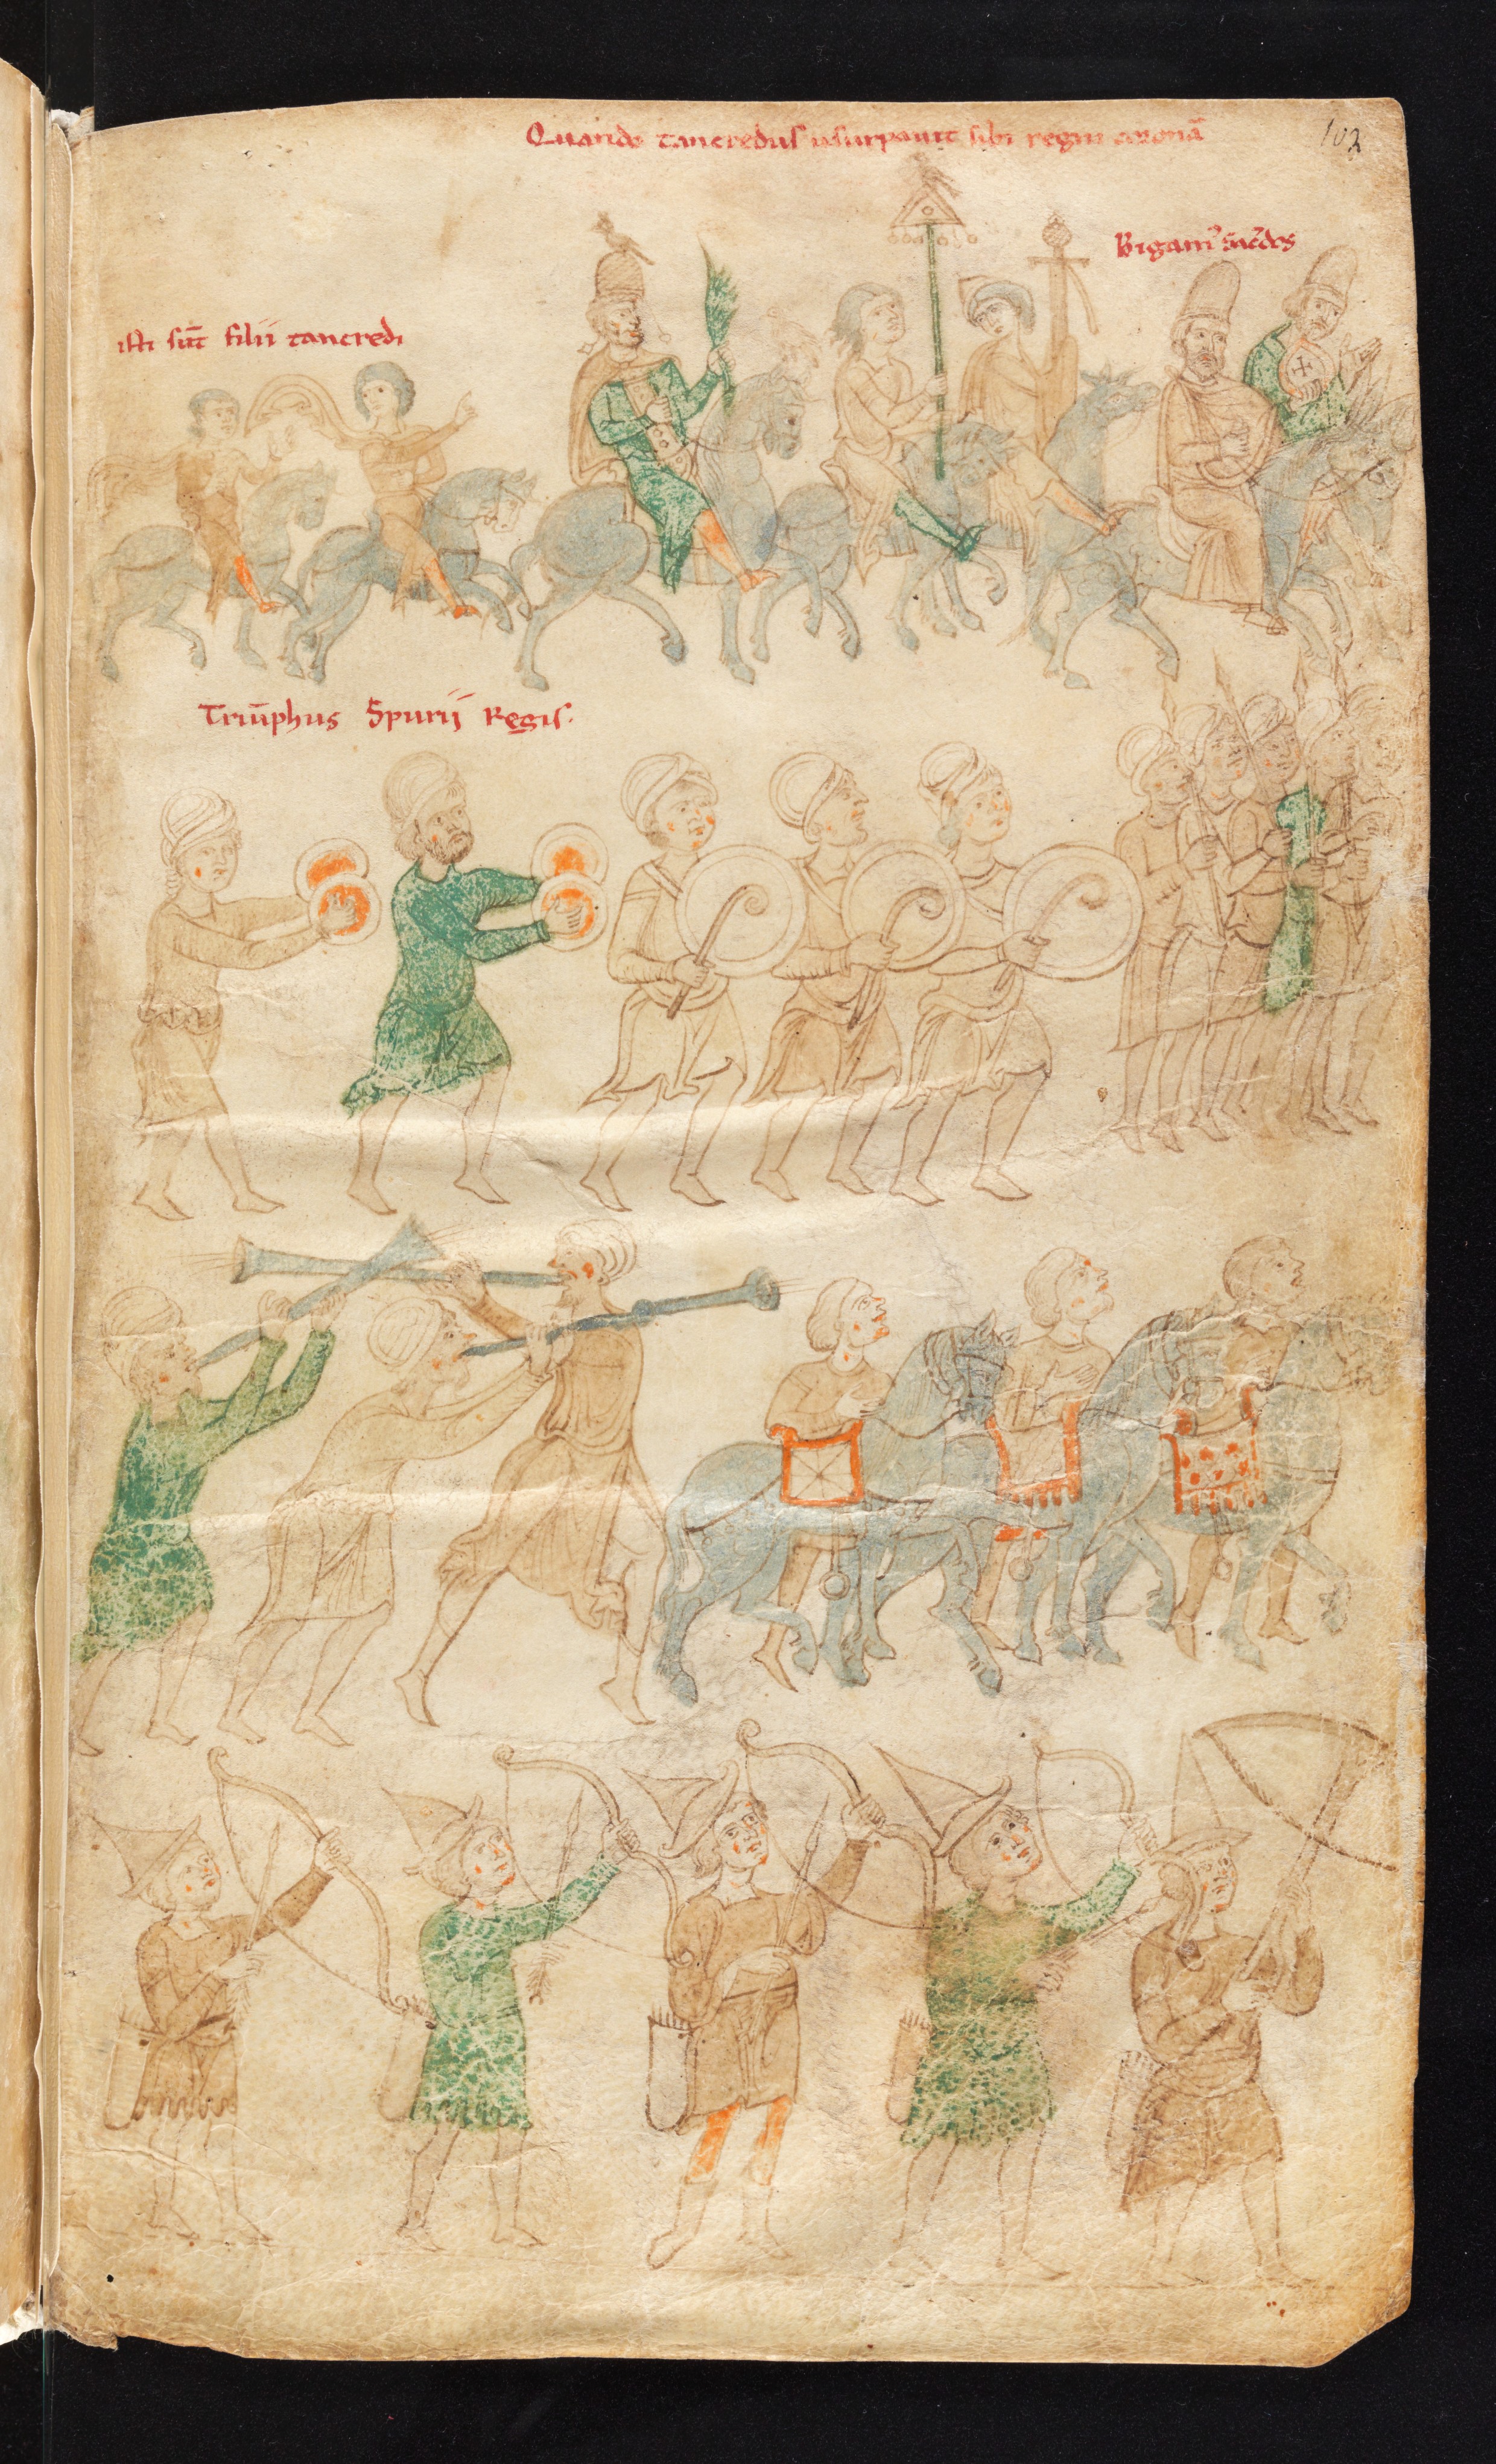 Quando tancredus usurpavit sibi regni coronā
102
Bigam⁹ sac̄dos
isti sūt filii tancredi
Triūphus Spurii Regis.